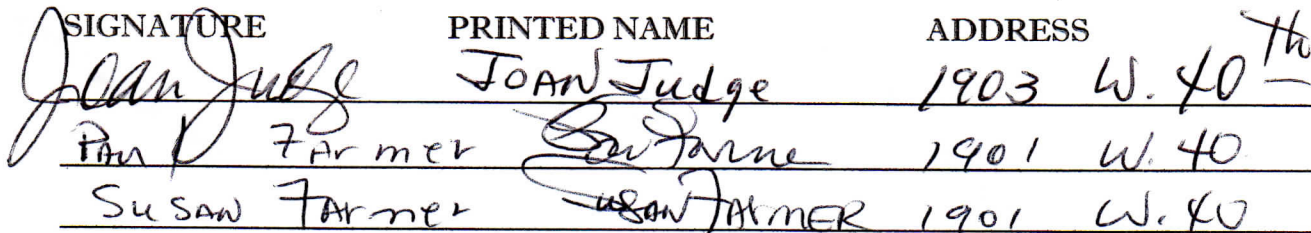 SIGNATURE PRINTED NAME ADDRESS
Joan Judge JOAN Judge 1903 W. 40th
Farmer 1901 W. 40
SUSAN Farmer SUSAN FARMER 1901 W. 40